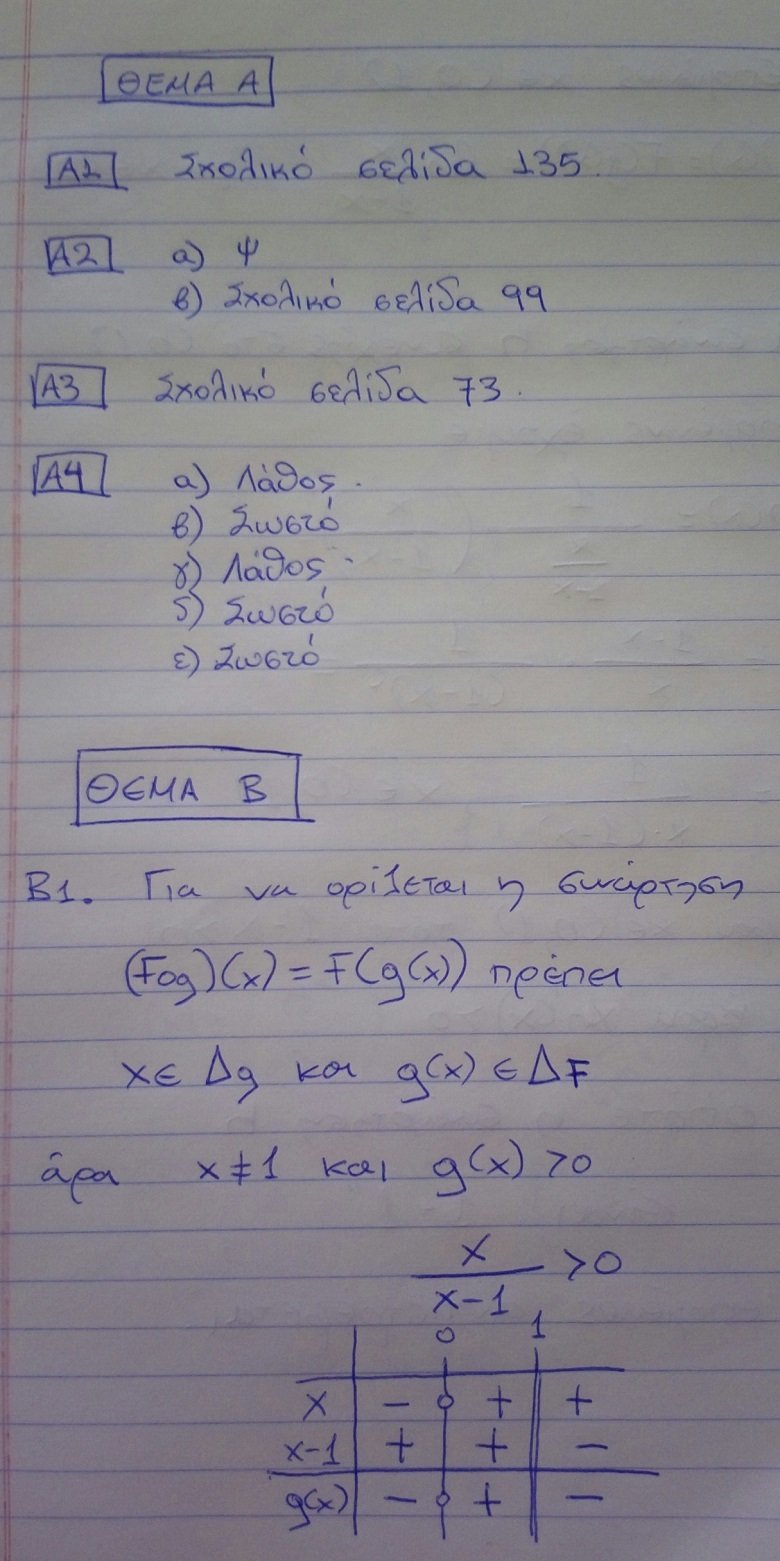 ΘΕΜΑ Α
Α1 Σχολικό σελίδα 135.
Α2 α) Ψ
β) Σχολικό σελίδα 99
Α3 Σχολικό σελίδα 73.
Α4 α) Λάθος.
β) Σωστό
γ) Λάθος.
δ) Σωστό
ε) Σωστό
ΘΕΜΑ Β
Β1. Για να ορίζεται η συνάρτηση
(Fog)(x) = F(g(x)) πρέπει
x ∈ Δg και g(x) ∈ ΔF
άρα x ≠ 1 και g(x) > 0
x / x-1 > 0
0 1
x - 0 + +
x-1 + + -
g(x) - 0 + -